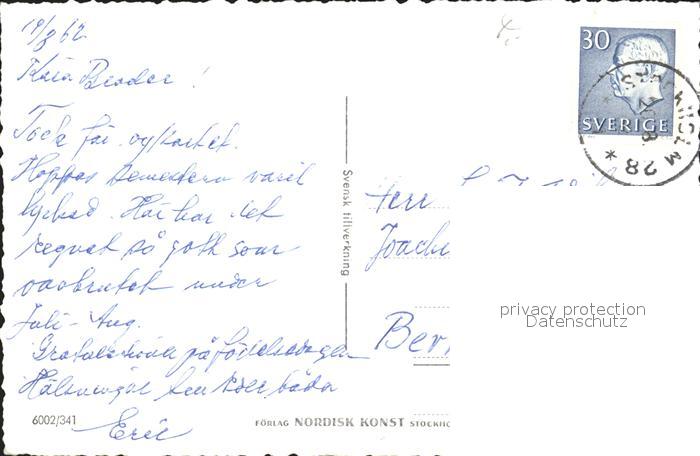 19/8 62
Kära Broder!
Tack för vykortet.
Hoppas semestern varit
lyckad. Här har det
regnat så gott som
oavbrutet under
Juli - Aug.
Gratulationer på födelsedagen
Hälsningar
Eric
6002/341
Svensk tillverkning
FÖRLAG NORDISK KONST STOCKHO
30
SVERIGE
STOCKHOLM
28
Herr
Joach
Ber
privacy protection
Datenschutz